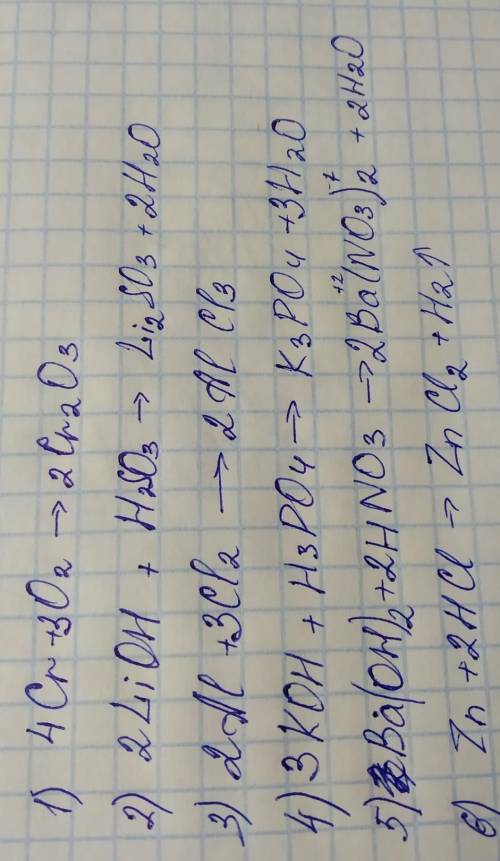 1) 4Cr + 3O₂ → 2Cr₂O₃
2) 2LiOH + H₂SO₃ → Li₂SO₃ + 2H₂O
3) 2Al + 3Cl₂ → 2AlCl₃
4) 3KOH + H₃PO₄ → K₃PO₄ + 3H₂O
5) Ba(OH)₂ + 2HNO₃ → 2Ba⁺²(NO₃)⁻¹₂ + 2H₂O
6) Zn + 2HCl → ZnCl₂ + H₂↑